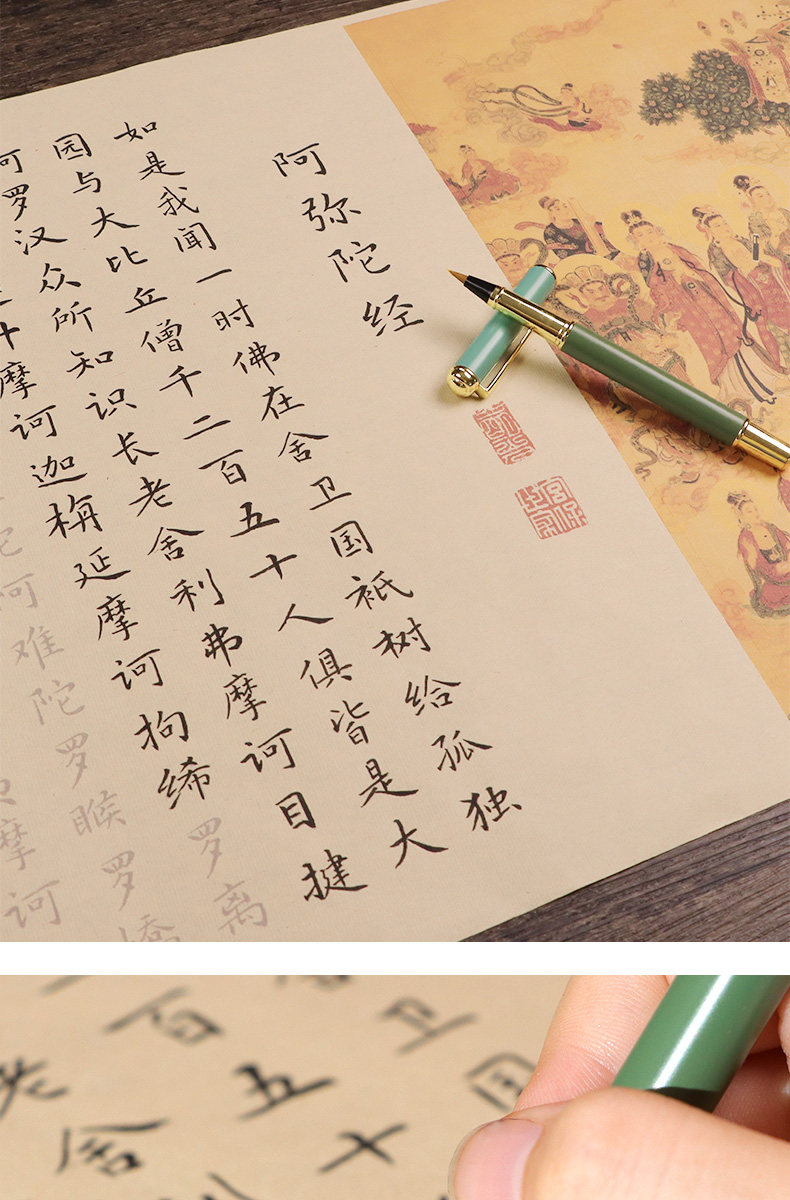 阿弥陀经
如是我闻一时佛在舍卫国祇树给孤独
园与大比丘僧千二百五十人俱皆是大
阿罗汉众所知识长老舍利弗摩诃目揵
摩诃迦栴延摩诃拘絺罗离
陀阿难陀罗睺罗憍
摩诃
卫国
百五十
老舍